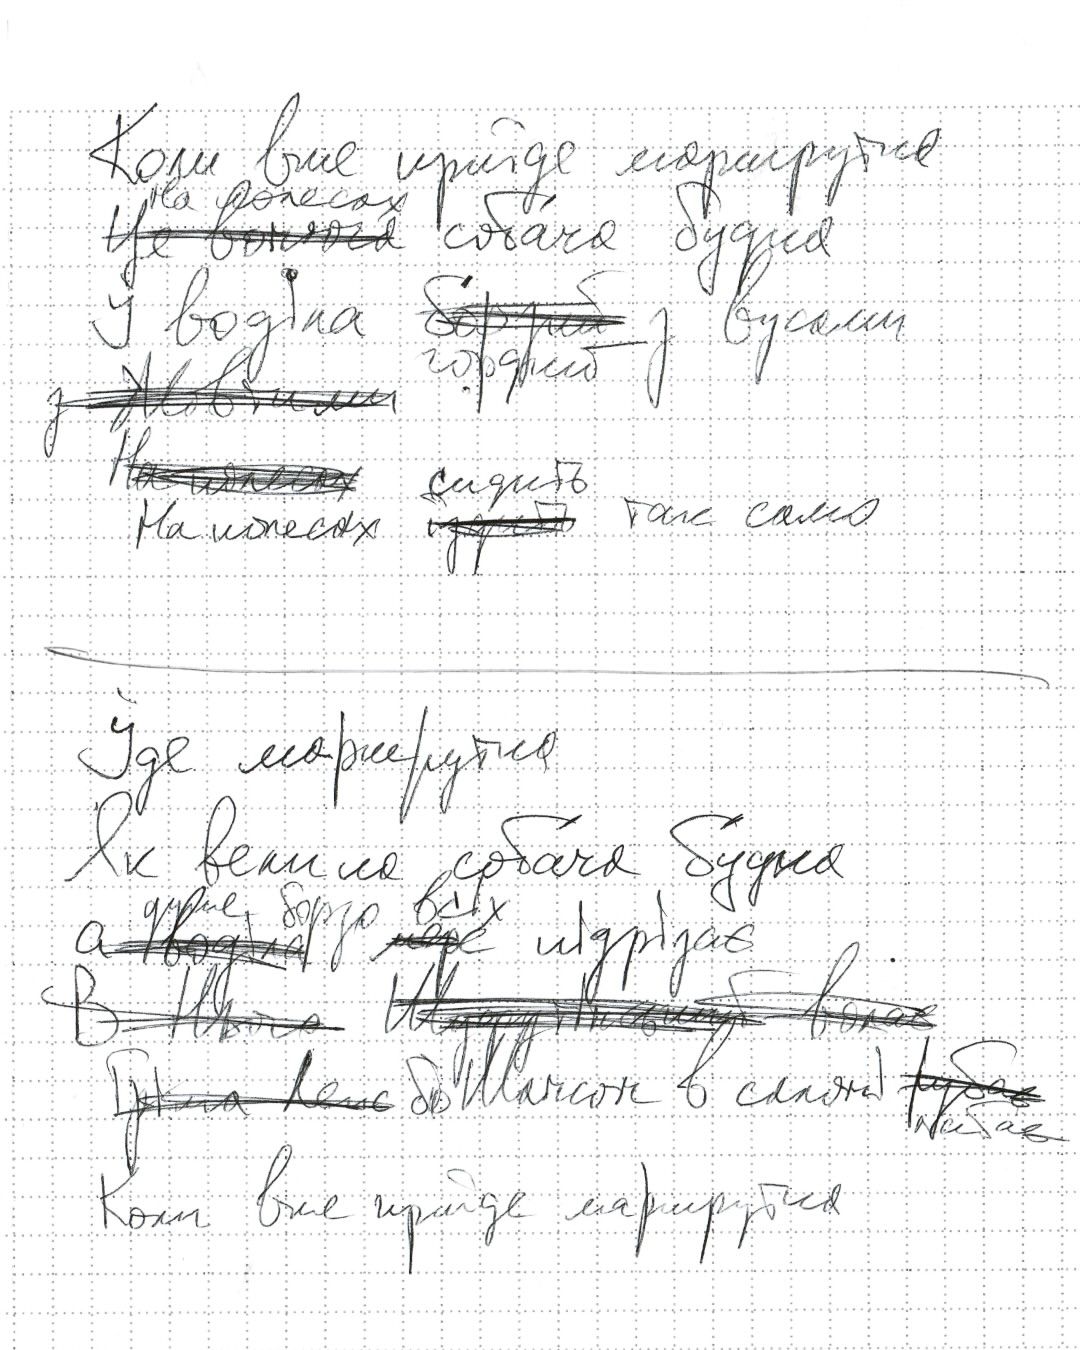 Коли вже прийде маршрутка
На колесах
собача будка
І воділа з вусами
гордий
з Жовтими
На колесах сидить
На колесах так само
Їде маршрутка
Як велика собача будка
дуже борзо всіх
а воділа підрізає
В Нього
бо Шансон в салоні
Коли вже прийде маршрутка